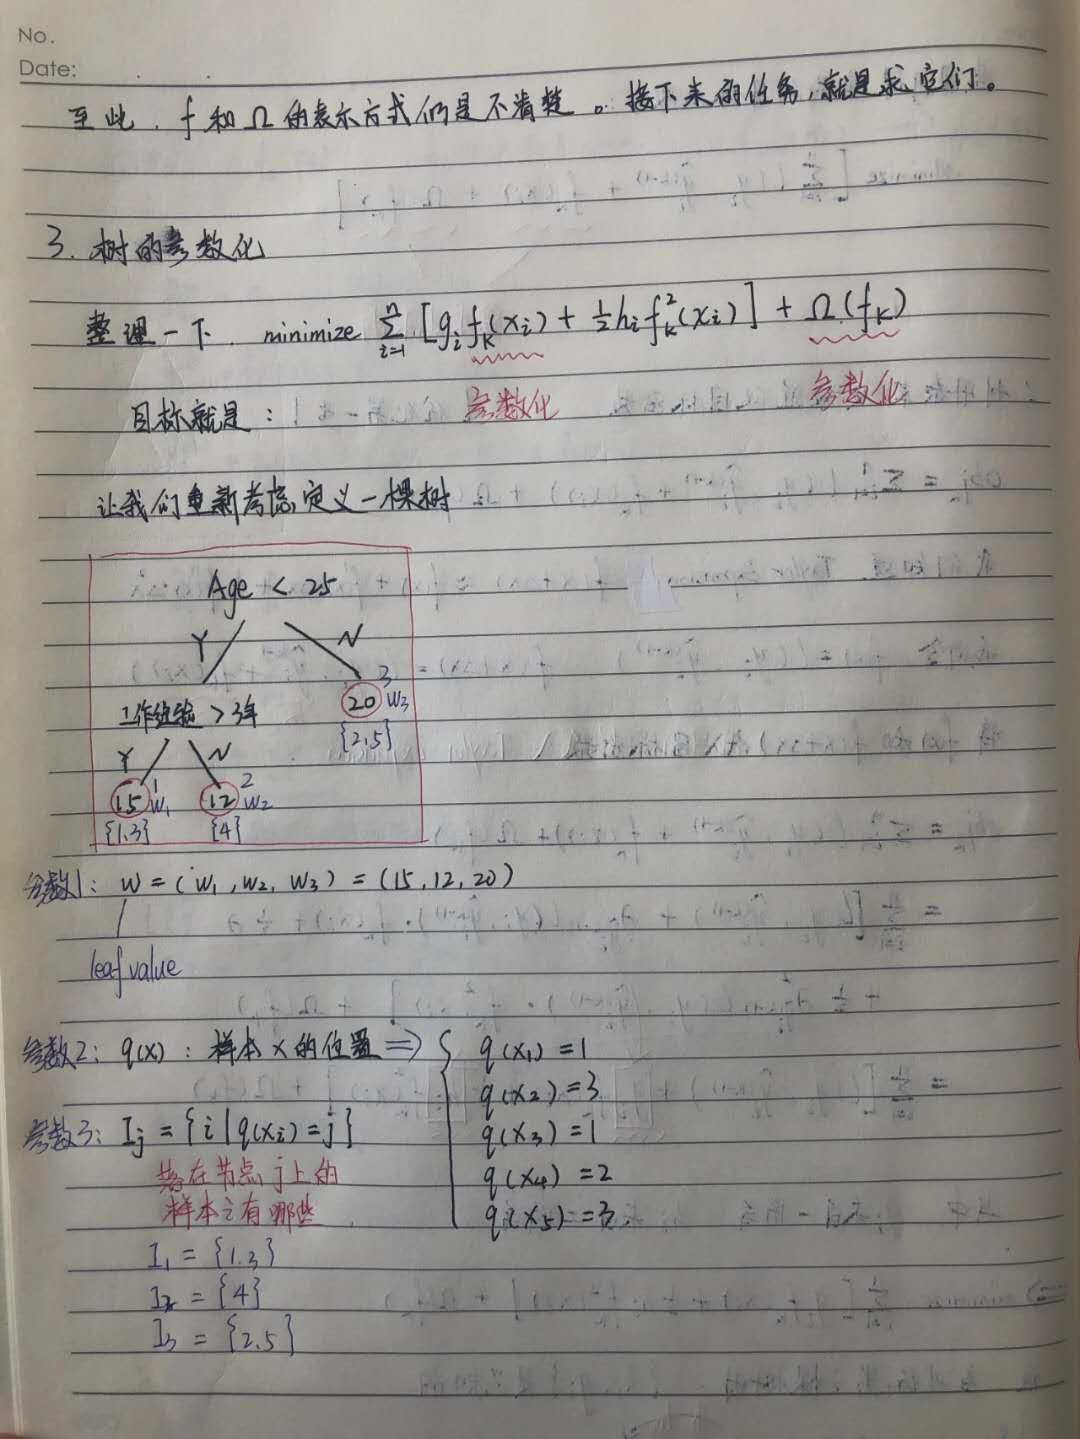 No.
Date:
至此，f和Ω的表示方式仍是不清楚。接下来的任务，就是求它们。
3. 树的参数化
整理一下. minimize Σ_{i=1}^{n} [g_i f_K(x_i) + ½ h_i f_K²(x_i)] + Ω(f_K)
目标就是： 参数化 参数化
让我们重新考虑定义一棵树
Age < 25
Y N
工作经验 > 3年 20 3 w₃
{2,5}
Y N
15 1 w₁ 12 2 w₂
{1.3} {4}
参数1: w = (w₁, w₂, w₃) = (15, 12, 20)
leaf value
参数2: q(x) : 样本x的位置 ⇒ { q(x₁) = 1
q(x₂) = 3
参数3: I_j = {i | q(x_i) = j} q(x₃) = 1
落在节点j上的 q(x₄) = 2
样本有哪些 q(x₅) = 3
I₁ = {1.3}
I₂ = {4}
I₃ = {2.5}